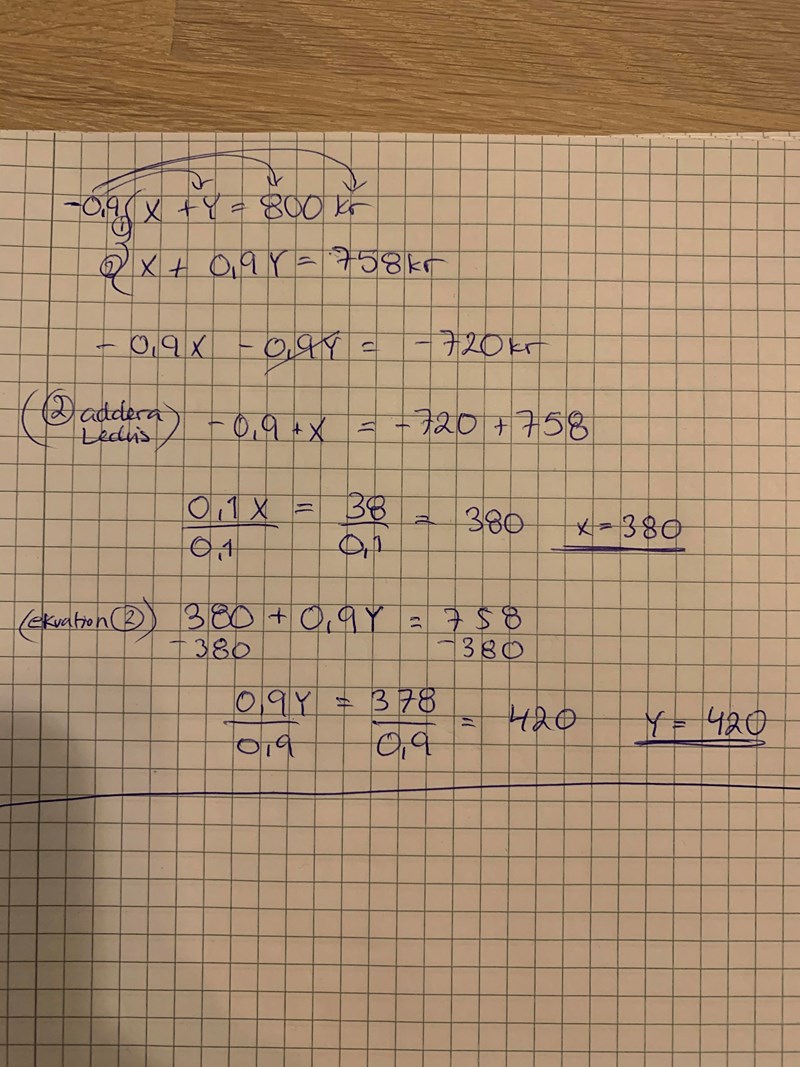 -0,9 ① { X + Y = 800 kr
② { X + 0,9Y = 758kr
- 0,9X - 0,9Y = -720kr
(② addera Ledvis) - 0,9 + X = -720 + 758
0,1X / 0,1 = 38 / 0,1 = 380 X = 380
(ekvation ②) 380 + 0,9Y = 758
-380 -380
0,9Y / 0,9 = 378 / 0,9 = 420 Y = 420